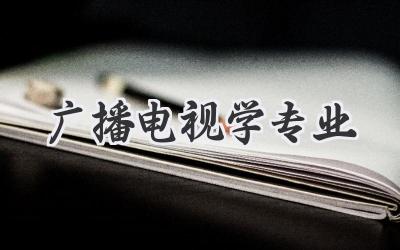 广播电视学专业